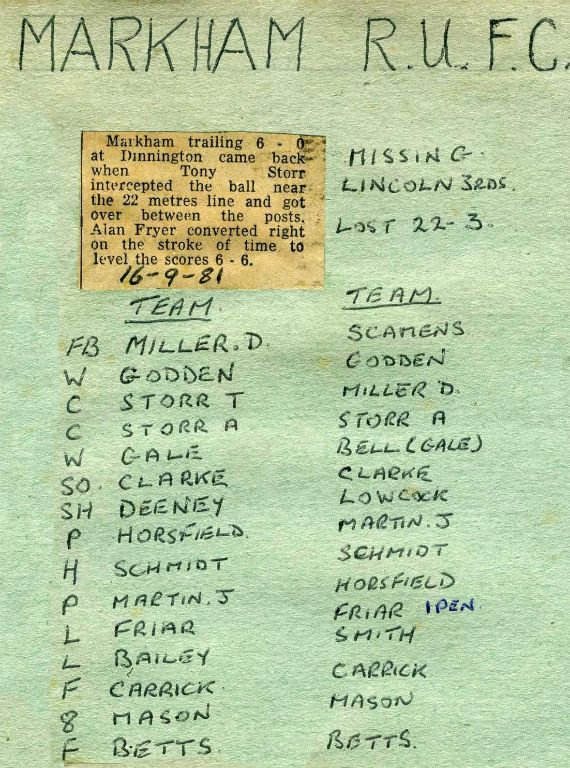 MARKHAM R.U.F.C.
Markham trailing 6 - 0
at Dinnington came back
when Tony Storr
intercepted the ball near
the 22 metres line and got
over between the posts.
Alan Fryer converted right
on the stroke of time to
level the scores 6 - 6.
16-9-81
TEAM
FB MILLER. D.
W GODDEN
C STORR T
C STORR A
W GALE
SO. CLARKE
SH DEENEY
P HORSFIELD.
H SCHMIDT
P MARTIN. J
L FRIAR
L BAILEY
F CARRICK
8 MASON
F BETTS.
MISSING.
LINCOLN 3RDS.
LOST 22-3.
TEAM.
SCAMENS
GODDEN
MILLER D.
STORR A
BELL (GALE)
CLARKE
LOWCOCK
MARTIN. J
SCHMIDT
HORSFIELD
FRIAR 1 PEN.
SMITH
CARRICK
MASON
BETTS.